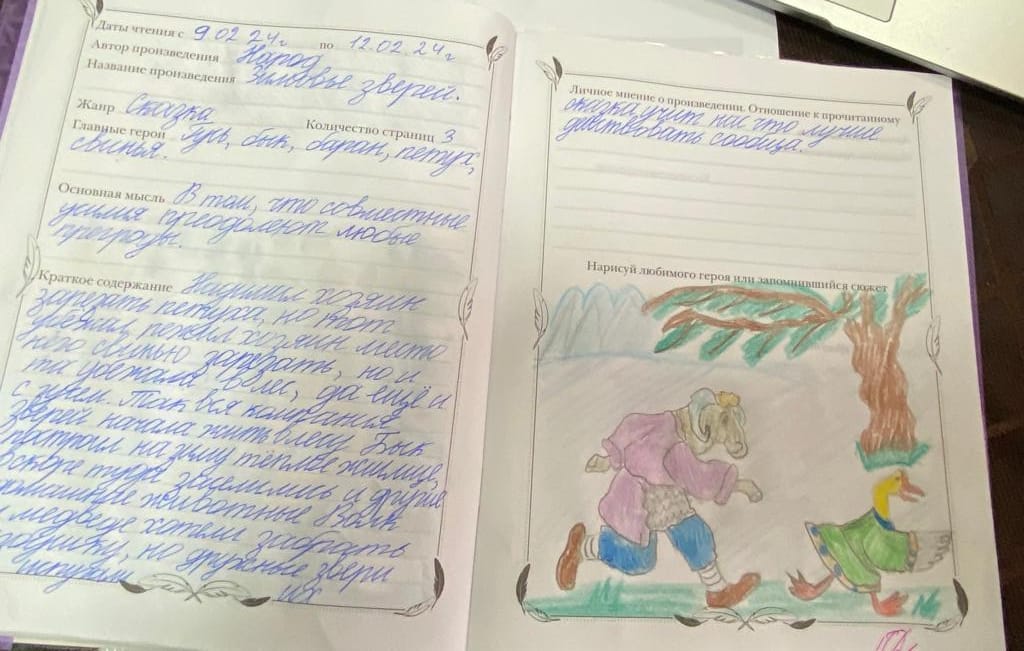 Даты чтения с 9.02 24г по 12.02.24г
Автор произведения Народ
Название произведения Зимовье зверей.
Жанр Сказка Количество страниц 3
Главные герои Гусь, бык, баран, петух,
свинья.
Основная мысль В том, что совместные
усилия преодолеют любые
преграды.
Краткое содержание хозяин
зарезать петуха, но тот
убежал, хозяин место
него свинью зарезать, но и
та убежала в лес, да ещё и
с гусем. Так вся компания
зверей начала жить в лесу. Бык
построил на зиму тёплое жилище,
вскоре туда заселились и другие
домашние животные Волк
и медведь хотели забрать
но дружные звери
их
Личное мнение о произведении. Отношение к прочитанному
сказка учит нас что лучше
действовать сообща.
Нарисуй любимого героя или запомнившийся сюжет